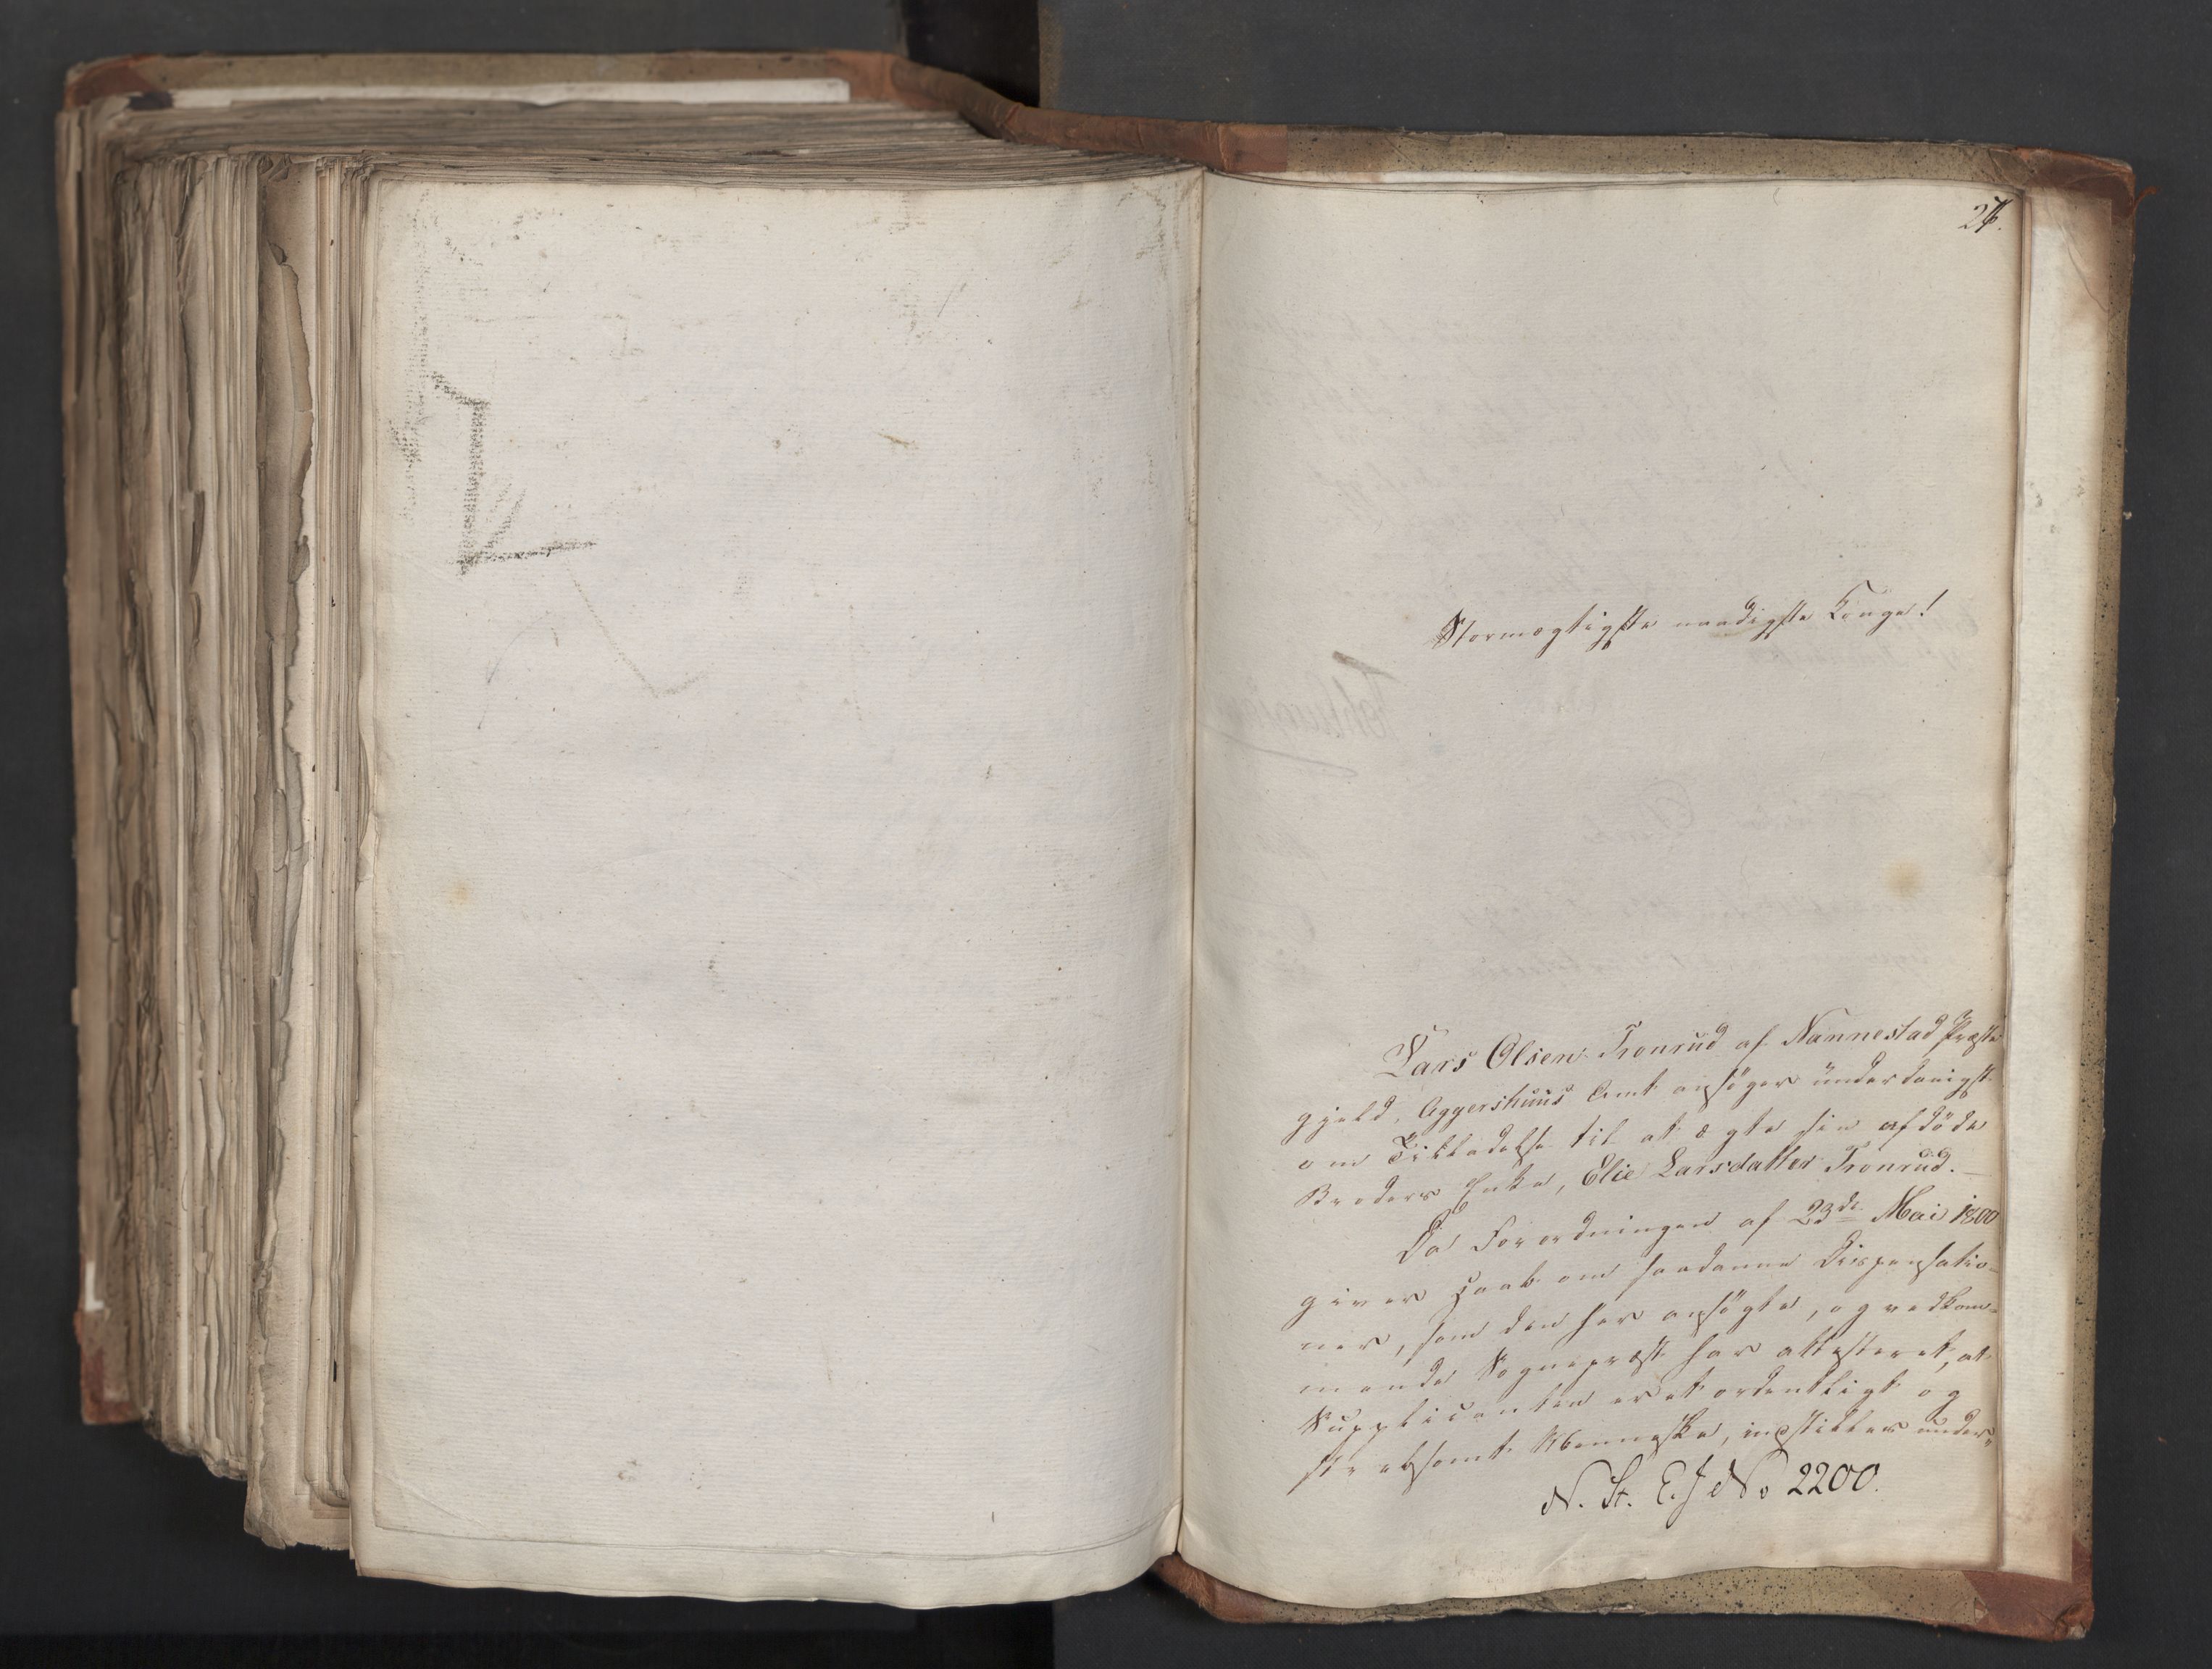 Stormægtigste naadigste Konge!
Lars Olsen Tronrud af Nannestad Præste
gjeld, Aggershuus Amt ansøger underdanigst
om Tilladelse til at ægte sin afdøde
Broders Enke, Elie Larsdatter Tronrud. —
Da Forordningen af 23de Mai 1800
giver Haab om saadanne Dispensatio-
ner, som den her ansøgte, og vedkom-
mende Sognepræst har attesteret, at
Supplicanten er et ordentligt og
stræbsomt Menneske, instilles under-
N. St. E. J No 2200.